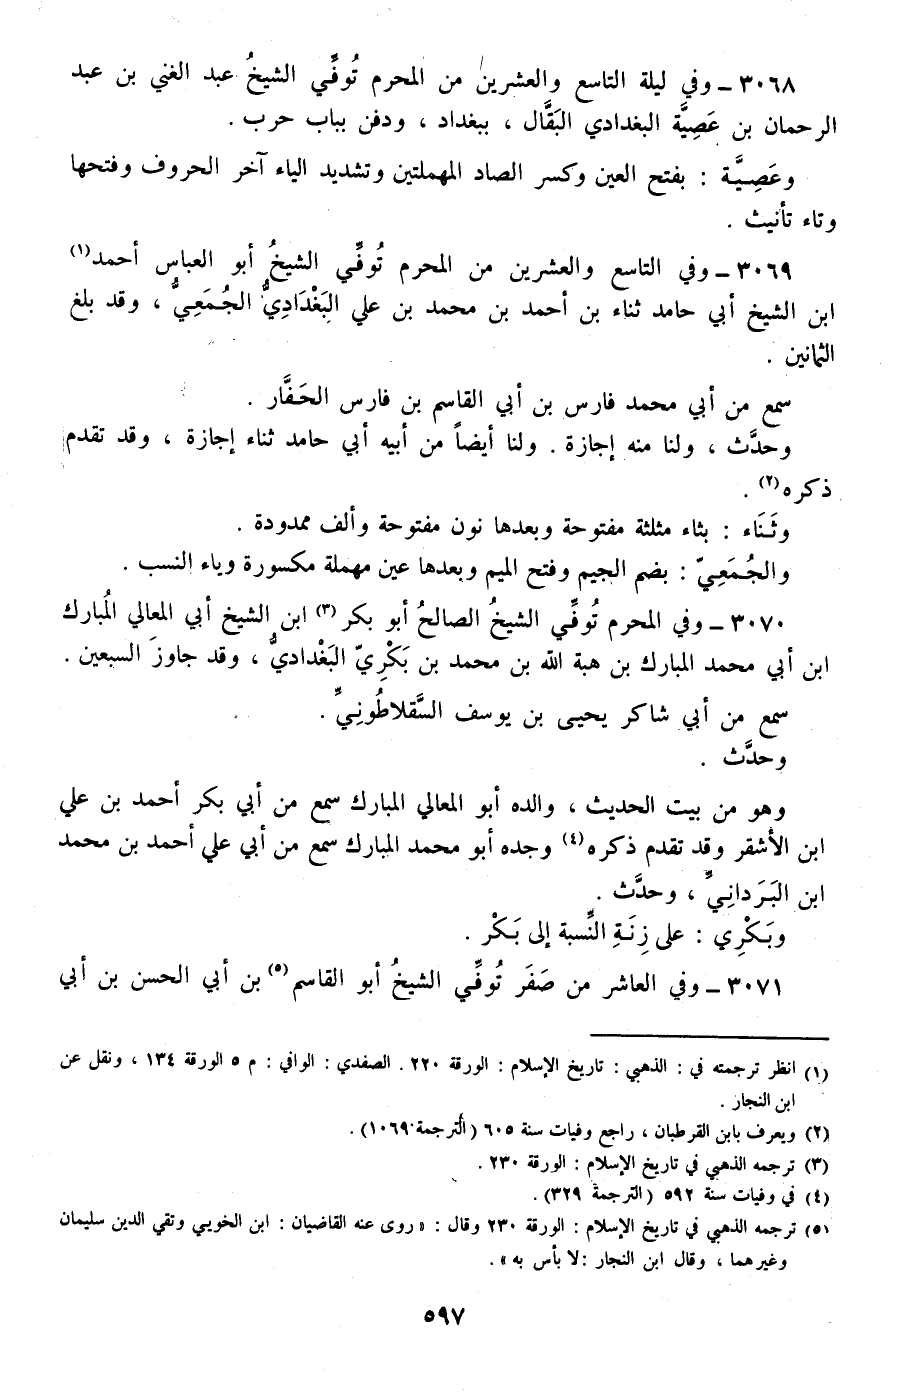 ٣٠٦٨ ـ وفي ليلة التاسع والعشرين من المحرم تُوفِّي الشيخُ عبد الغني بن عبد
الرحمان بن عَصِيَّة البغدادي البَقَّال ، ببغداد ، ودفن بباب حرب .
وعَصِيَّة : بفتح العين وكسر الصاد المهملتين وتشديد الياء آخر الحروف وفتحها
وتاء تأنيث .
٣٠٦٩ ـ وفي التاسع والعشرين من المحرم تُوفِّي الشيخُ أبو العباس أحمد(١)
ابن الشيخ أبي حامد ثناء بن أحمد بن محمد بن علي البَغْدَادِيُّ الجُمَعِيُّ ، وقد بلغ
الثمانين .
سمع من أبي محمد فارس بن أبي القاسم بن فارس الحَفَّار .
وحدَّث ، ولنا منه إجازة . ولنا أيضاً من أبيه أبي حامد ثناء إجازة ، وقد تقدم
ذكره(٢) .
وثَنَاء : بثاء مثلثة مفتوحة وبعدها نون مفتوحة وألف ممدودة .
والجُمَعِيّ : بضم الجيم وفتح الميم وبعدها عين مهملة مكسورة وياء النسب .
٣٠٧٠ ـ وفي المحرم تُوفِّي الشيخُ الصالحُ أبو بكر(٣) ابن الشيخ أبي المعالي المُبارك
ابن أبي محمد المبارك بن هبة الله بن محمد بن بَكْرِيّ البَغْداديُّ ، وقد جاوزَ السبعين .
سمع من أبي شاكر يحيى بن يوسف السَّقلاطُونِيِّ .
وحدَّث .
وهو من بيت الحديث ، والده أبو المعالي المبارك سمع من أبي بكر أحمد بن علي
ابن الأشقر وقد تقدم ذكره(٤) وجده أبو محمد المبارك سمع من أبي علي أحمد بن محمد
ابن البَرَدانِيِّ ، وحدَّث .
وبَكْرِي : على زِنَةِ النِّسبة إلى بَكْر .
٣٠٧١ ـ وفي العاشر من صَفَر تُوفِّي الشيخُ أبو القاسم(٥) بن أبي الحسن بن أبي
(١) انظر ترجمته في : الذهبي : تاريخ الإسلام : الورقة ٢٢٠ . الصفدي : الوافي : م ٥ الورقة ١٣٤ ، ونقل عن
ابن النجار .
(٢) ويعرف بابن القرطبان ، راجع وفيات سنة ٦٠٥ (الترجمة ١٠٦٩) .
(٣) ترجمه الذهبي في تاريخ الإسلام : الورقة ٢٣٠ .
(٤) في وفيات سنة ٥٩٢ (الترجمة ٣٢٩) .
(٥) ترجمه الذهبي في تاريخ الإسلام : الورقة ٢٣٠ وقال : « روى عنه القاضيان : ابن الخويي وتقي الدين سليمان
وغيرهما ، وقال ابن النجار : لا بأس به » .
٥٩٧